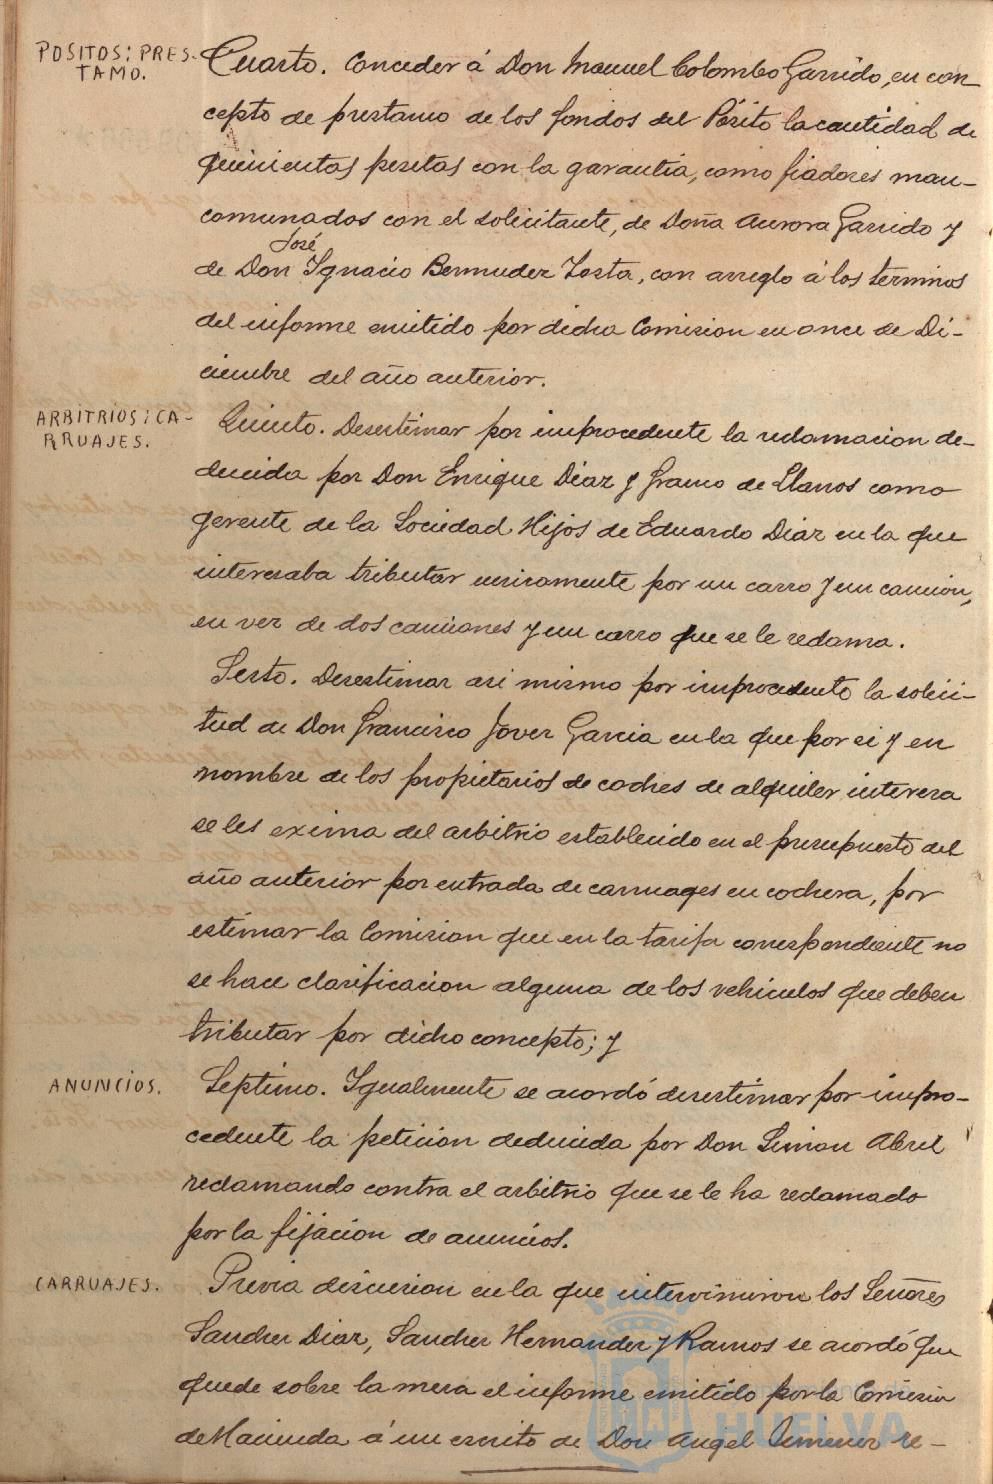 POSITOS; PRES-
TAMO.
Cuarto. Conceder á Don Manuel Colombo Garrido, en con-
cepto de prestamo de los fondos del Pósito la cantidad de
quinientas pesetas con la garantia, como fiadores man-
comunados con el solicitante, de Doña Aurora Garrido y
José
de Don Ignacio Bermudez Zosta, con arreglo á los terminos
del informe emitido por dicha Comision en once de Di-
ciembre del año anterior.
ARBITRIOS; CA-
RRUAJES.
Quinto. Desestimar por improcedente la reclamacion de-
ducida por Don Enrique Diaz y Franco de Llanos como
gerente de la Sociedad Hijos de Eduardo Diaz en la que
interesaba tributar unicamente por un carro y un camión,
en vez de dos camiones y un carro que se le reclama.
Sesto. Desestimar asi mismo por improcedente la solici-
tud de Don Francisco Jover Garcia en la que por si y en
nombre de los propietarios de coches de alquiler interesa
se les exima del arbitrio establecido en el presupuesto del
año anterior por entrada de carruages en cochera, por
estimar la Comision que en la tarifa correspondiente no
se hace clasificacion alguna de los vehiculos que deben
tributar por dicho concepto; y
ANUNCIOS.
Septimo. Igualmente se acordó desestimar por impro-
cedente la peticion deducida por Don Simon Abril
reclamando contra el arbitrio que se le ha reclamado
por la fijacion de anuncios.
CARRUAJES.
Previa discusion en la que intervinieron los Señores
Sanchez Diaz, Sanchez Hernandez y Ramos se acordó que
quede sobre la mesa el informe emitido por la Comision
de Hacienda á un escrito de Don Angel Jimenez re-
HUELVA